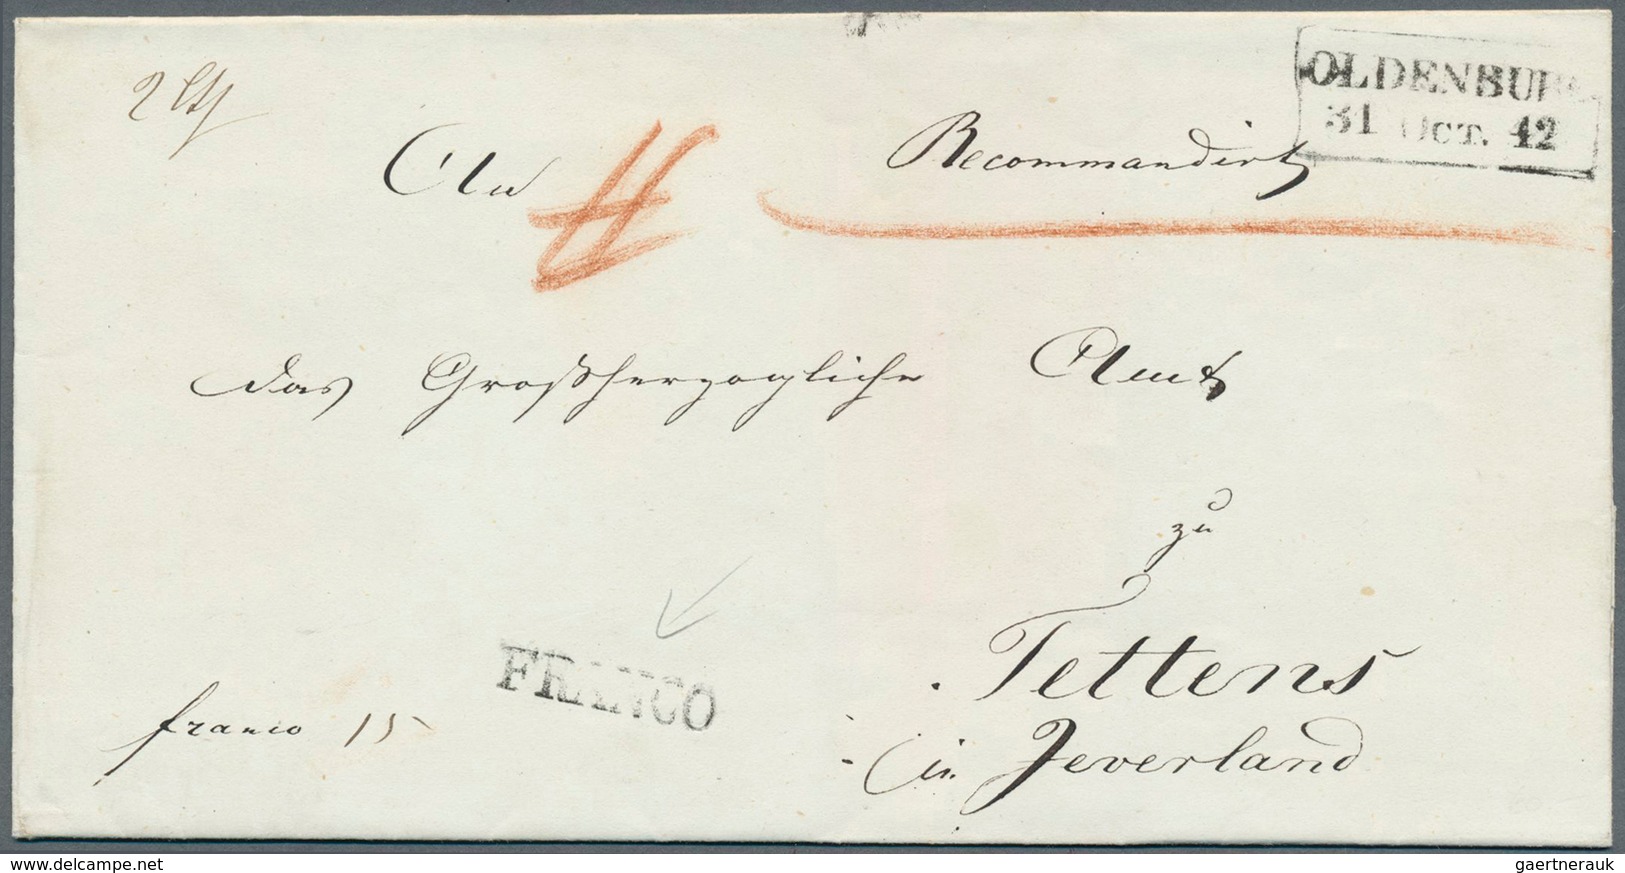 OLDENBURG
31 OCT. 42
2 Lth
An
Recommandirt
das Großherzogliche Amt
zu
Tettens
in Jeverland
FRANCO
franco 15
www.delcampe.net
gaertnerauk